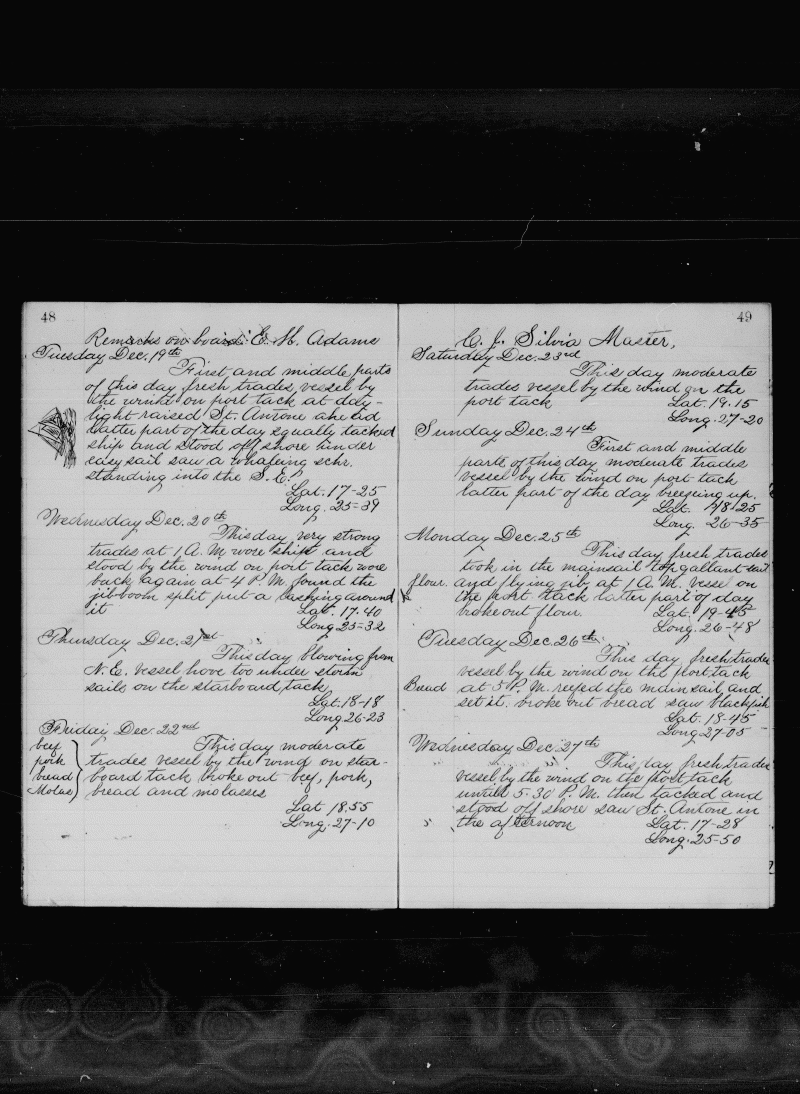 48
Remarks on board E. H. Adams
Tuesday Dec. 19th
First and middle parts
of this day fresh trades, vessel by
the wind on port tack at day-
light raised St. Antone ahead
latter part of the day squally tacked
ship and stood off shore under
easy sail saw a whaleing schr.
standing into the S. E.
Lat. 17-25
Long. 25-39
Wednesday Dec. 20th
This day very strong
trades at 1 A. M. wore ship and
stood by the wind on port tack wore
back again at 4 P. M. found the
jibboom split put a lashing around
it Lat. 17-40
Long 25-32
Thursday Dec. 21st
This day blowing from
N. E. vessel hove too under storm
sails on the starboard tack,
Lat. 18-18
Long 26-23
Friday Dec. 22nd
beef
pork
bread
Molas
This day moderate
trades vessel by the wind on star-
board tack broke out beef, pork,
bread and molasses
Lat 18.55
Long. 27-10
49
C. J. Silvia Master,
Saturday Dec. 23rd
This day moderate
trades vessel by the wind on the
port tack Lat. 19.15
Long. 27-20
Sunday Dec. 24th
First and middle
parts of this day moderate trades
vessel by the wind on port tack
latter part of the day breezing up.
Lat. 18.25
Long. 26-35
Monday Dec. 25th
This day fresh trades
took in the mainsail topgallant sail
flour. and flying jib at 1 A. M. vessel on
the port tack latter part of day
broke out flour. Lat. 19-
Long. 26-48
Tuesday Dec. 26th
This day fresh trades
vessel by the wind on the port tack
Bread at 5 P. M. reefed the mainsail and
set it. broke out bread saw blackfish
Lat. 18-45
Long 27-05
Wednesday Dec 27th
This day fresh trades
vessel by the wind on the port tack
untill 5-30 P. M. then tacked and
stood off shore saw St. Antone in
the afternoon Lat. 17-28
Long. 25-50